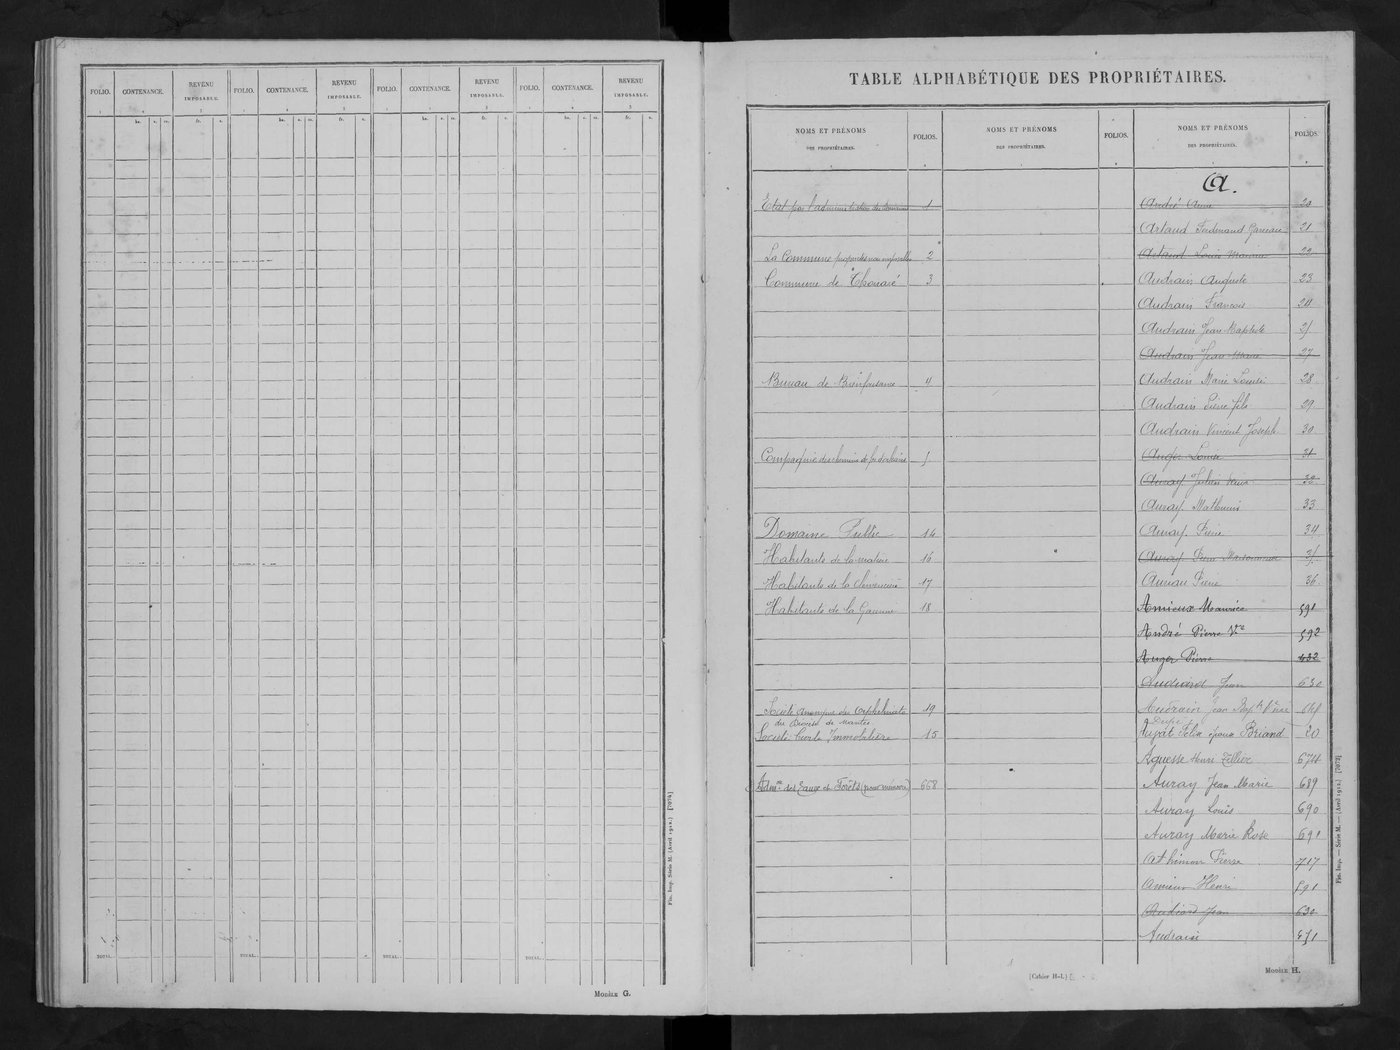 FOLIO. CONTENANCE. REVENU IMPOSABLE. FOLIO. CONTENANCE. REVENU IMPOSABLE. FOLIO. CONTENANCE. REVENU IMPOSABLE. FOLIO. CONTENANCE. REVENU IMPOSABLE.
ha. a. ca. fr. c. ha. a. ca. fr. c. ha. a. ca. fr. c. ha. a. ca. fr. c.
TOTAL. TOTAL. TOTAL. TOTAL.
Modèle G.
Fin. Imp. Série M. (Avril 1912.) [7074]
TABLE ALPHABÉTIQUE DES PROPRIÉTAIRES.
NOMS ET PRÉNOMS DES PROPRIÉTAIRES. FOLIOS. NOMS ET PRÉNOMS DES PROPRIÉTAIRES. FOLIOS. NOMS ET PRÉNOMS DES PROPRIÉTAIRES. FOLIOS.
Etat par l'administration des domaines 1
La Commune propriétés non imposables 2
Commune de Thouaré 3
Bureau de Bienfaisance 4
Compagnie des chemins de fer d'orléans 5
Domaine Public 14
Habitants de la 16
Habitants de la 17
Habitants de la Garenne 18
Société Anonyme des Orphelinats 19
du Diocèse de Nantes
Société Immobilière 15
Adm.on des Eaux et Forêts (pour mémoire) 668
A.
André Anne 20
Artaud Ferdinand 21
Artaud Louis 22
Audrain Auguste 23
Audrain François 24
Audrain Jean Baptiste 25
Audrain Jean Marie 27
Audrain Marie Louise 28
Audrain Pierre fils 29
Audrain Vincent Joseph 30
Auger Louise 31
Auray Julien 32
Auray Mathurin 33
Auray Pierre 34
Auray Pierre 35
Auneau Pierre 36
Amieux Maurice 591
André Pierre Vve 592
Auger Pierre 632
Audiard Jean 630
Audrain Jean Bapte
Félix époux Briand 20
Aguesse Henri 674
Auray Jean Marie 689
Auray Louis 690
Auray Marie Rose 691
Athimon Pierre 717
Amieux Henri 591
Audiard Jean 630
Audrain 651
(Cahier H-I.)
Modèle H.
Fin. Imp. — Série M. — (Avril 1912.) [7073]